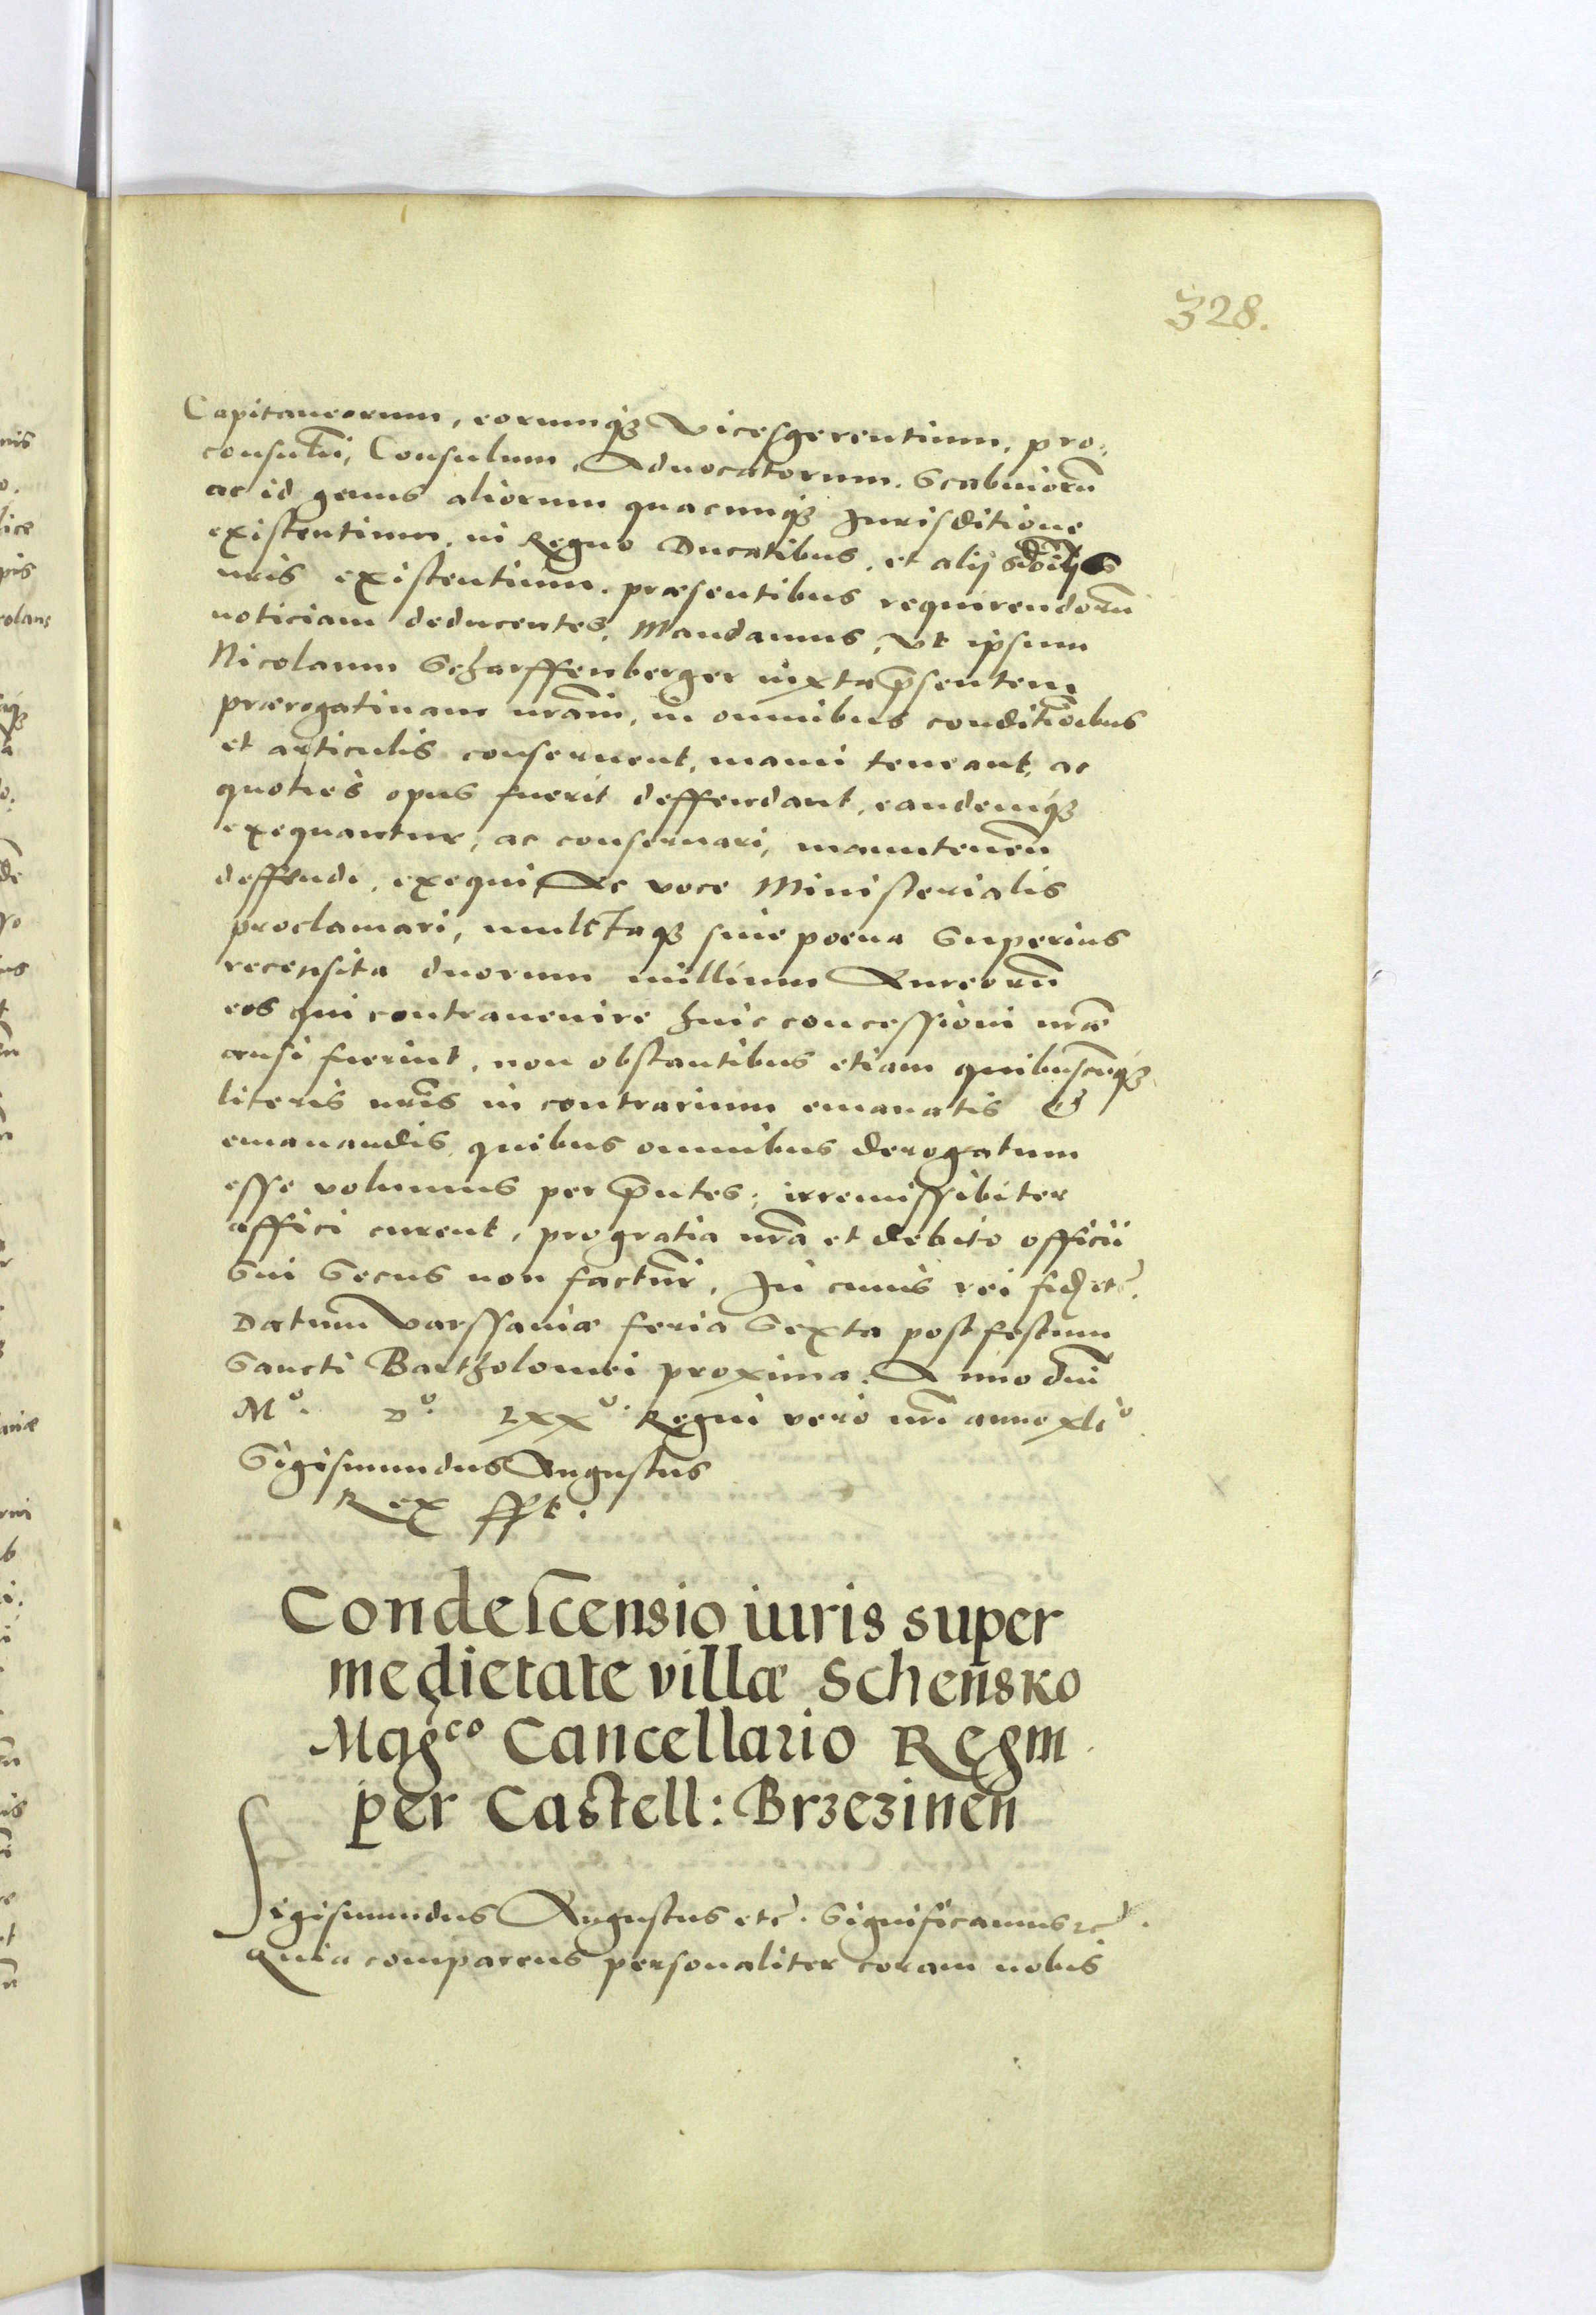 328.
Capitaneorum, eorumqꜫ Vicesgerentium, pro,,
consulũ, Consulum, Aduocatorum. Scabinorũ
ac id genus aliorum quacunqꜫ Jurisditione
existentium. in Regno Ducatibus. et alijs dñijs
nr̃is existentium. præsentibus requirendorũ
noticiam deducentes, Mandamus, Vt ipsum
Nicolaum Scharffenberger iuxta p̃sentem
prærogatiuam nr̃am, in omnibus conditiõibus
et articulis conseruent, manu teneant, ac
quoties opus fuerit deffendant, eandemq́ꜫ
exequantur, ac conseruari, manuteneri
deffendi, exequi Ac voce Ministerialis
proclamari, mulctaqꜫ siue poena Superius
recensita duorum millium Aureorũ
eos qui contrauenire huic concessioni nr̃æ
ausi fuerint, non obstantibus etiam quibuscũqꜫ
literis nr̃is in contrarium emanatis &
emanandis, quibus omnibus derogatum
esse volumus per p̃ntes, irremissibiter
affici curent, pro gratia nr̃a et debito officii
Sui Secus non facturi, In cuius rei fid̃ etc̃.
Datum Varssauiæ feria Sexta post festum
Sancti Bartholomei proxima. Anno dñi
Mº. Dº. LXXº. Regni vero nr̃i anno xliº
Sigismundus Augustus
Rex sspt.
Condescensio iuris super
medietate villæ Scheñsko
Mag̃co Cancellario Regni
per Castell: Brzezineñ
Sigismundus Augustus etc̃. Significamus etc̃.
Quia comparens personaliter coram nobis